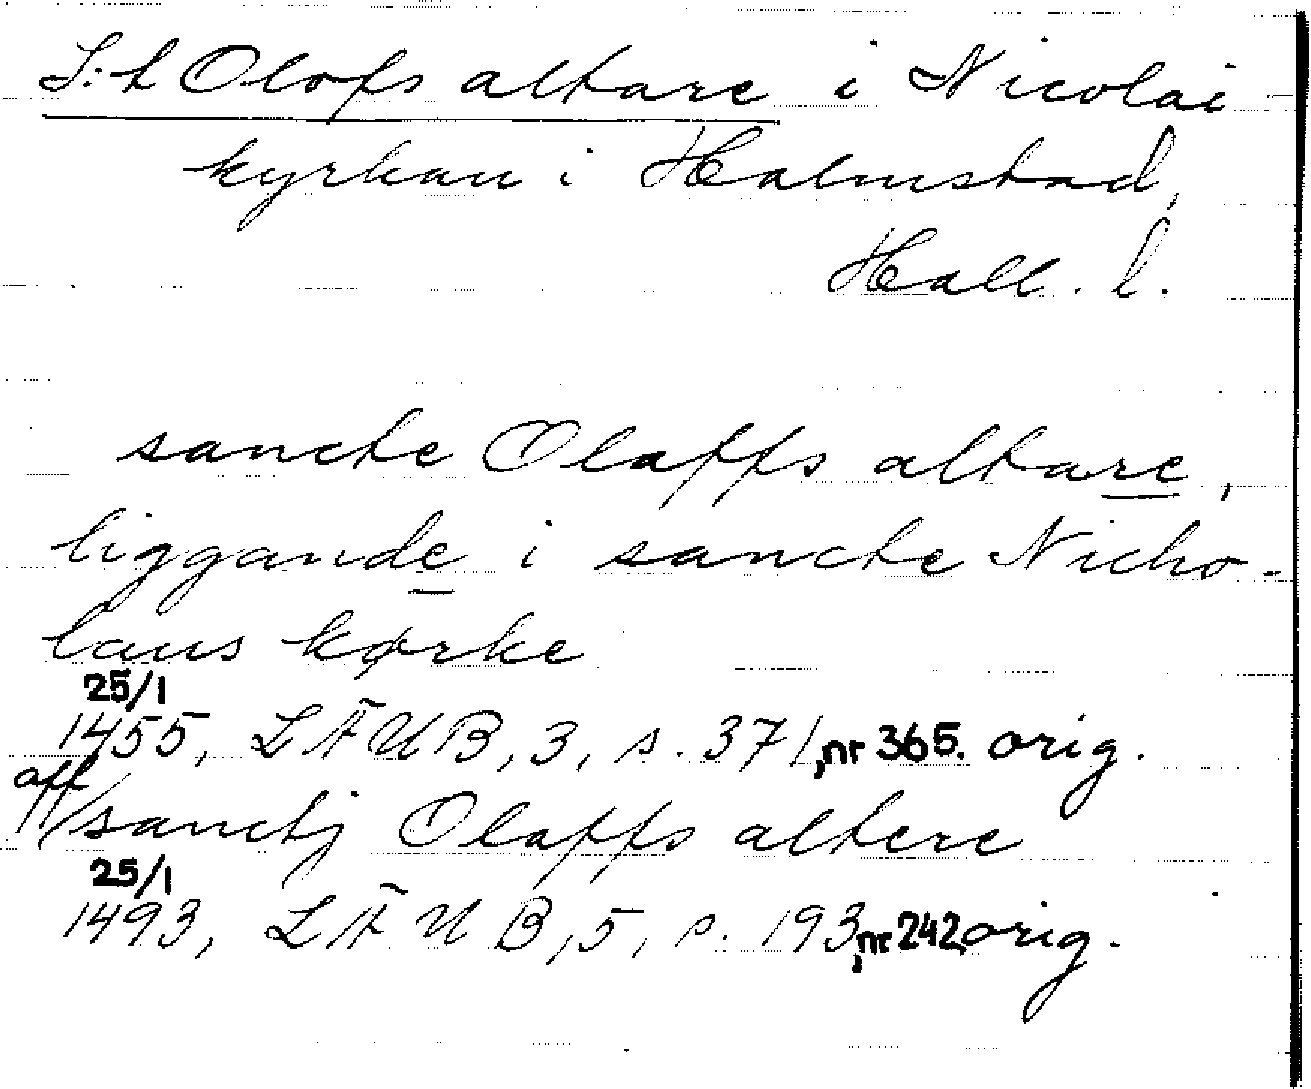 S:t Olofs altare i Nicolai
kyrkan i Halmstad,
Hall. l.
sancte Olaffs altare,
liggande i sancte Nicho-
laus kørke
25/1
1455, LÄUB, 3, s. 371, nr 365. orig.
aff/sanctj Olaffs altere
25/1
1493, LÄUB, 5, s. 193, nr 242, orig.